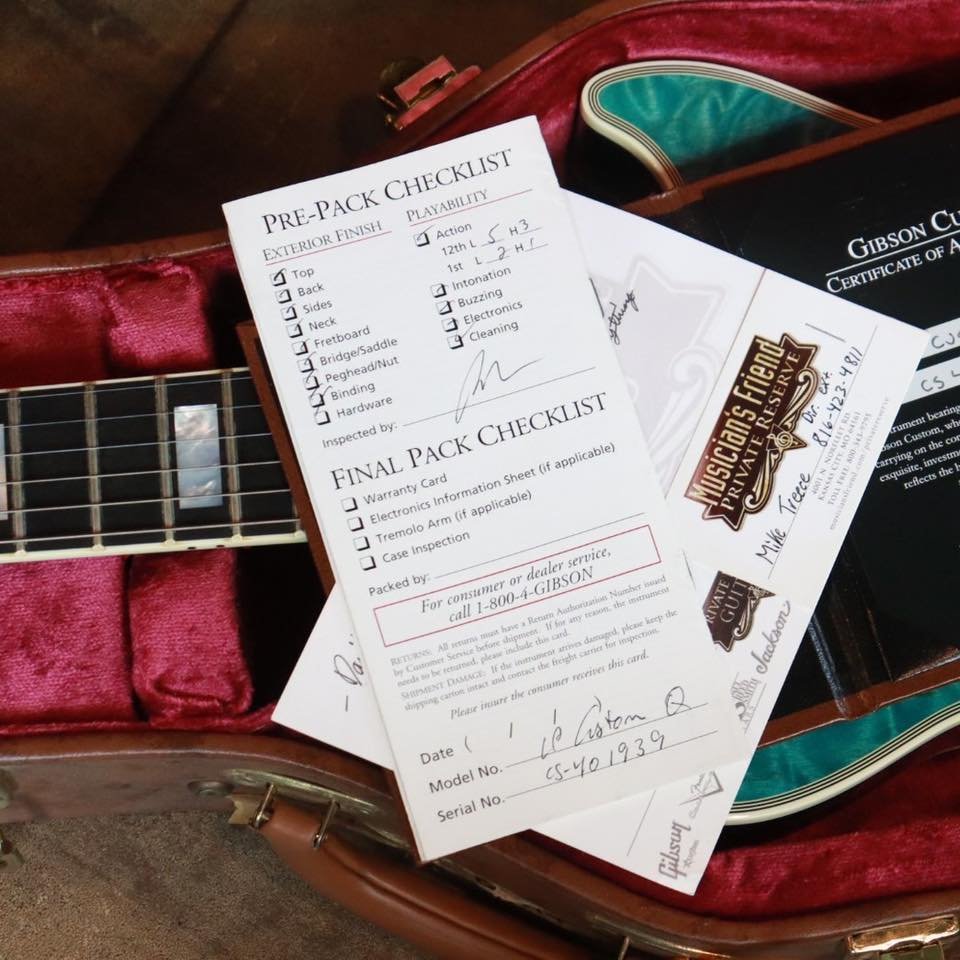 PRE-PACK CHECKLIST
EXTERIOR FINISH
Top
Back
Sides
Neck
Fretboard
Bridge/Saddle
Peghead/Nut
Binding
Hardware
PLAYABILITY
Action
12th L 5 H 3
1st L 2 H 1
Intonation
Buzzing
Electronics
Cleaning
Inspected by:
FINAL PACK CHECKLIST
Warranty Card
Electronics Information Sheet (if applicable)
Tremolo Arm (if applicable)
Case Inspection
Packed by:
For consumer or dealer service,
call 1-800-4-GIBSON
RETURNS: All returns must have a Return Authorization Number issued
by Customer Service before shipment. If for any reason, the instrument
needs to be returned, please include this card.
SHIPMENT DAMAGE: If the instrument arrives damaged, please keep the
shipping carton intact and contact the freight carrier for inspection.
Please insure the consumer receives this card.
Date
Model No. LP Custom Q
Serial No. CS-401939
Musician's Friend
PRIVATE RESERVE
Mike Treece Dir. Ext.
816-423-4811
4001 N. NORFLEET RD.
KANSAS CITY, MO 64161
TOLL FREE: 800-343-9795
musiciansfriend.com/privatereserve
PRIVATE
GUIT
Jackson
Gibson
Custom
GIBSON CU
CERTIFICATE OF A
CS 4
strument bearing
bson Custom, whe
carrying on the co
exquisite, investm
reflects the h